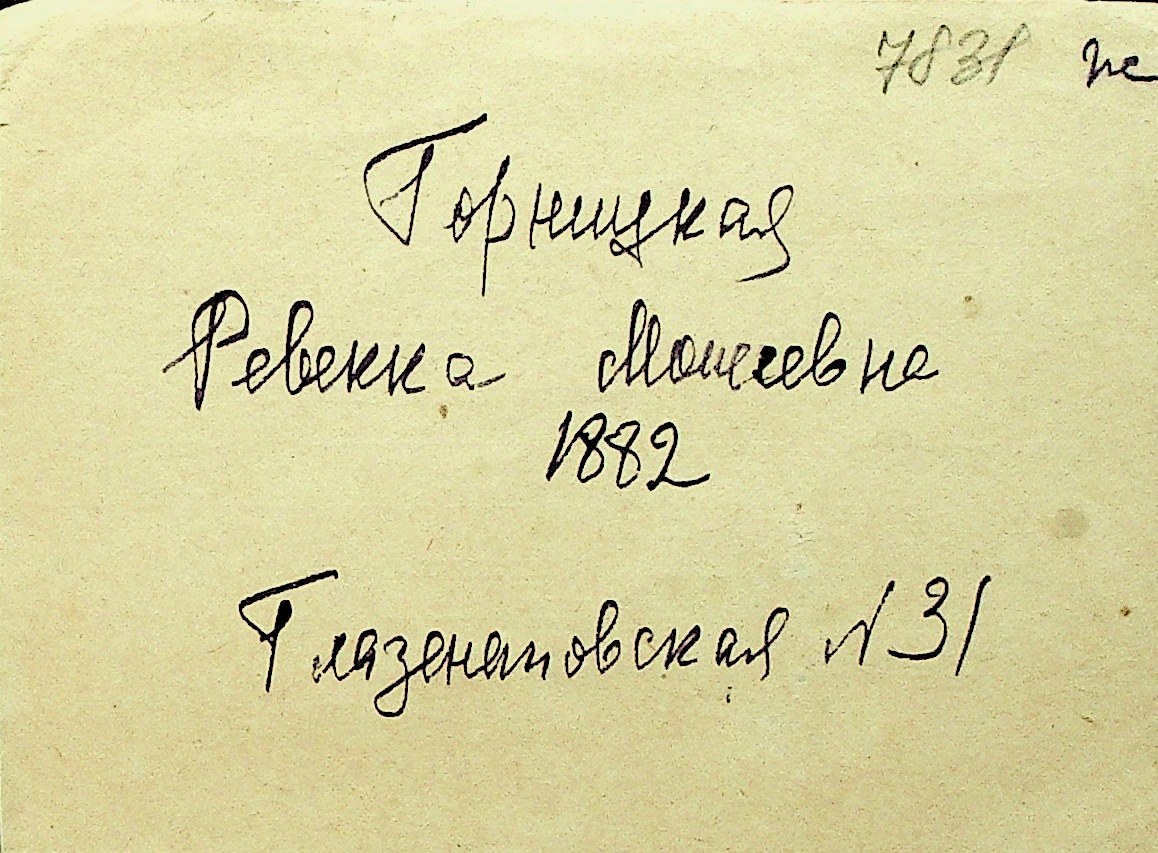 7831 ж
Горницкая
Ревекка Моисеевна
1882
Глазенаповская №31